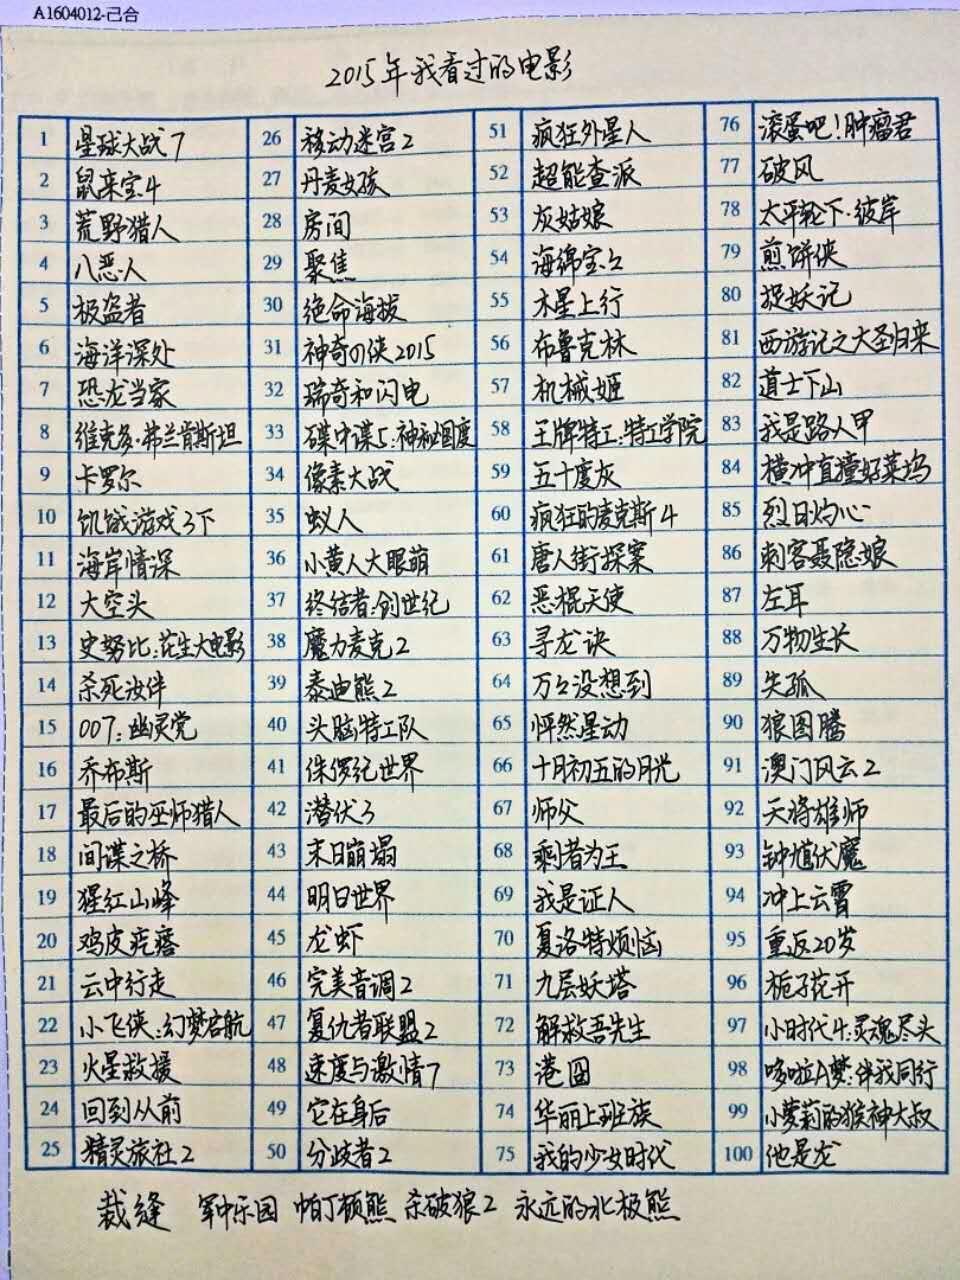 A1604012-己合
2015年我看过的电影
1 星球大战7 26 移动迷宫2 51 疯狂外星人 76 滚蛋吧!肿瘤君
2 鼠来宝4 27 丹麦女孩 52 超能查派 77 破风
3 荒野猎人 28 房间 53 灰姑娘 78 太平轮下·彼岸
4 八恶人 29 聚焦 54 海绵宝2 79 煎饼侠
5 极盗者 30 绝命海拔 55 木星上行 80 捉妖记
6 海洋深处 31 神奇の侠2015 56 布鲁克林 81 西游记之大圣归来
7 恐龙当家 32 瑞奇和闪电 57 机械姬 82 道士下山
8 维克多·弗兰肯斯坦 33 碟中谍5:神秘国度 58 王牌特工:特工学院 83 我是路人甲
9 卡罗尔 34 像素大战 59 五十度灰 84 横冲直撞好莱坞
10 饥饿游戏3下 35 蚁人 60 疯狂的麦克斯4 85 烈日灼心
11 海岸情深 36 小黄人大眼萌 61 唐人街探案 86 刺客聂隐娘
12 大空头 37 终结者:创世纪 62 恶棍天使 87 左耳
13 史努比:花生大电影 38 魔力麦克2 63 寻龙诀 88 万物生长
14 杀死汝伴 39 泰迪熊2 64 万万没想到 89 失孤
15 007:幽灵党 40 头脑特工队 65 怦然星动 90 狼图腾
16 乔布斯 41 侏罗纪世界 66 十月初五的月光 91 澳门风云2
17 最后的巫师猎人 42 潜伏3 67 师父 92 天将雄师
18 间谍之桥 43 末日崩塌 68 剩者为王 93 钟馗伏魔
19 猩红山峰 44 明日世界 69 我是证人 94 冲上云霄
20 鸡皮疙瘩 45 龙虾 70 夏洛特烦恼 95 重返20岁
21 云中行走 46 完美音调2 71 九层妖塔 96 栀子花开
22 小飞侠:幻梦启航 47 复仇者联盟2 72 解救吾先生 97 小时代4:灵魂尽头
23 火星救援 48 速度与激情7 73 港囧 98 哆啦A梦:伴我同行
24 回到从前 49 它在身后 74 华丽上班族 99 小萝莉的猴神大叔
25 精灵旅社2 50 分歧者2 75 我的少女时代 100 他是龙
裁缝 军中乐园 帕丁顿熊 杀破狼2 永远的北极熊